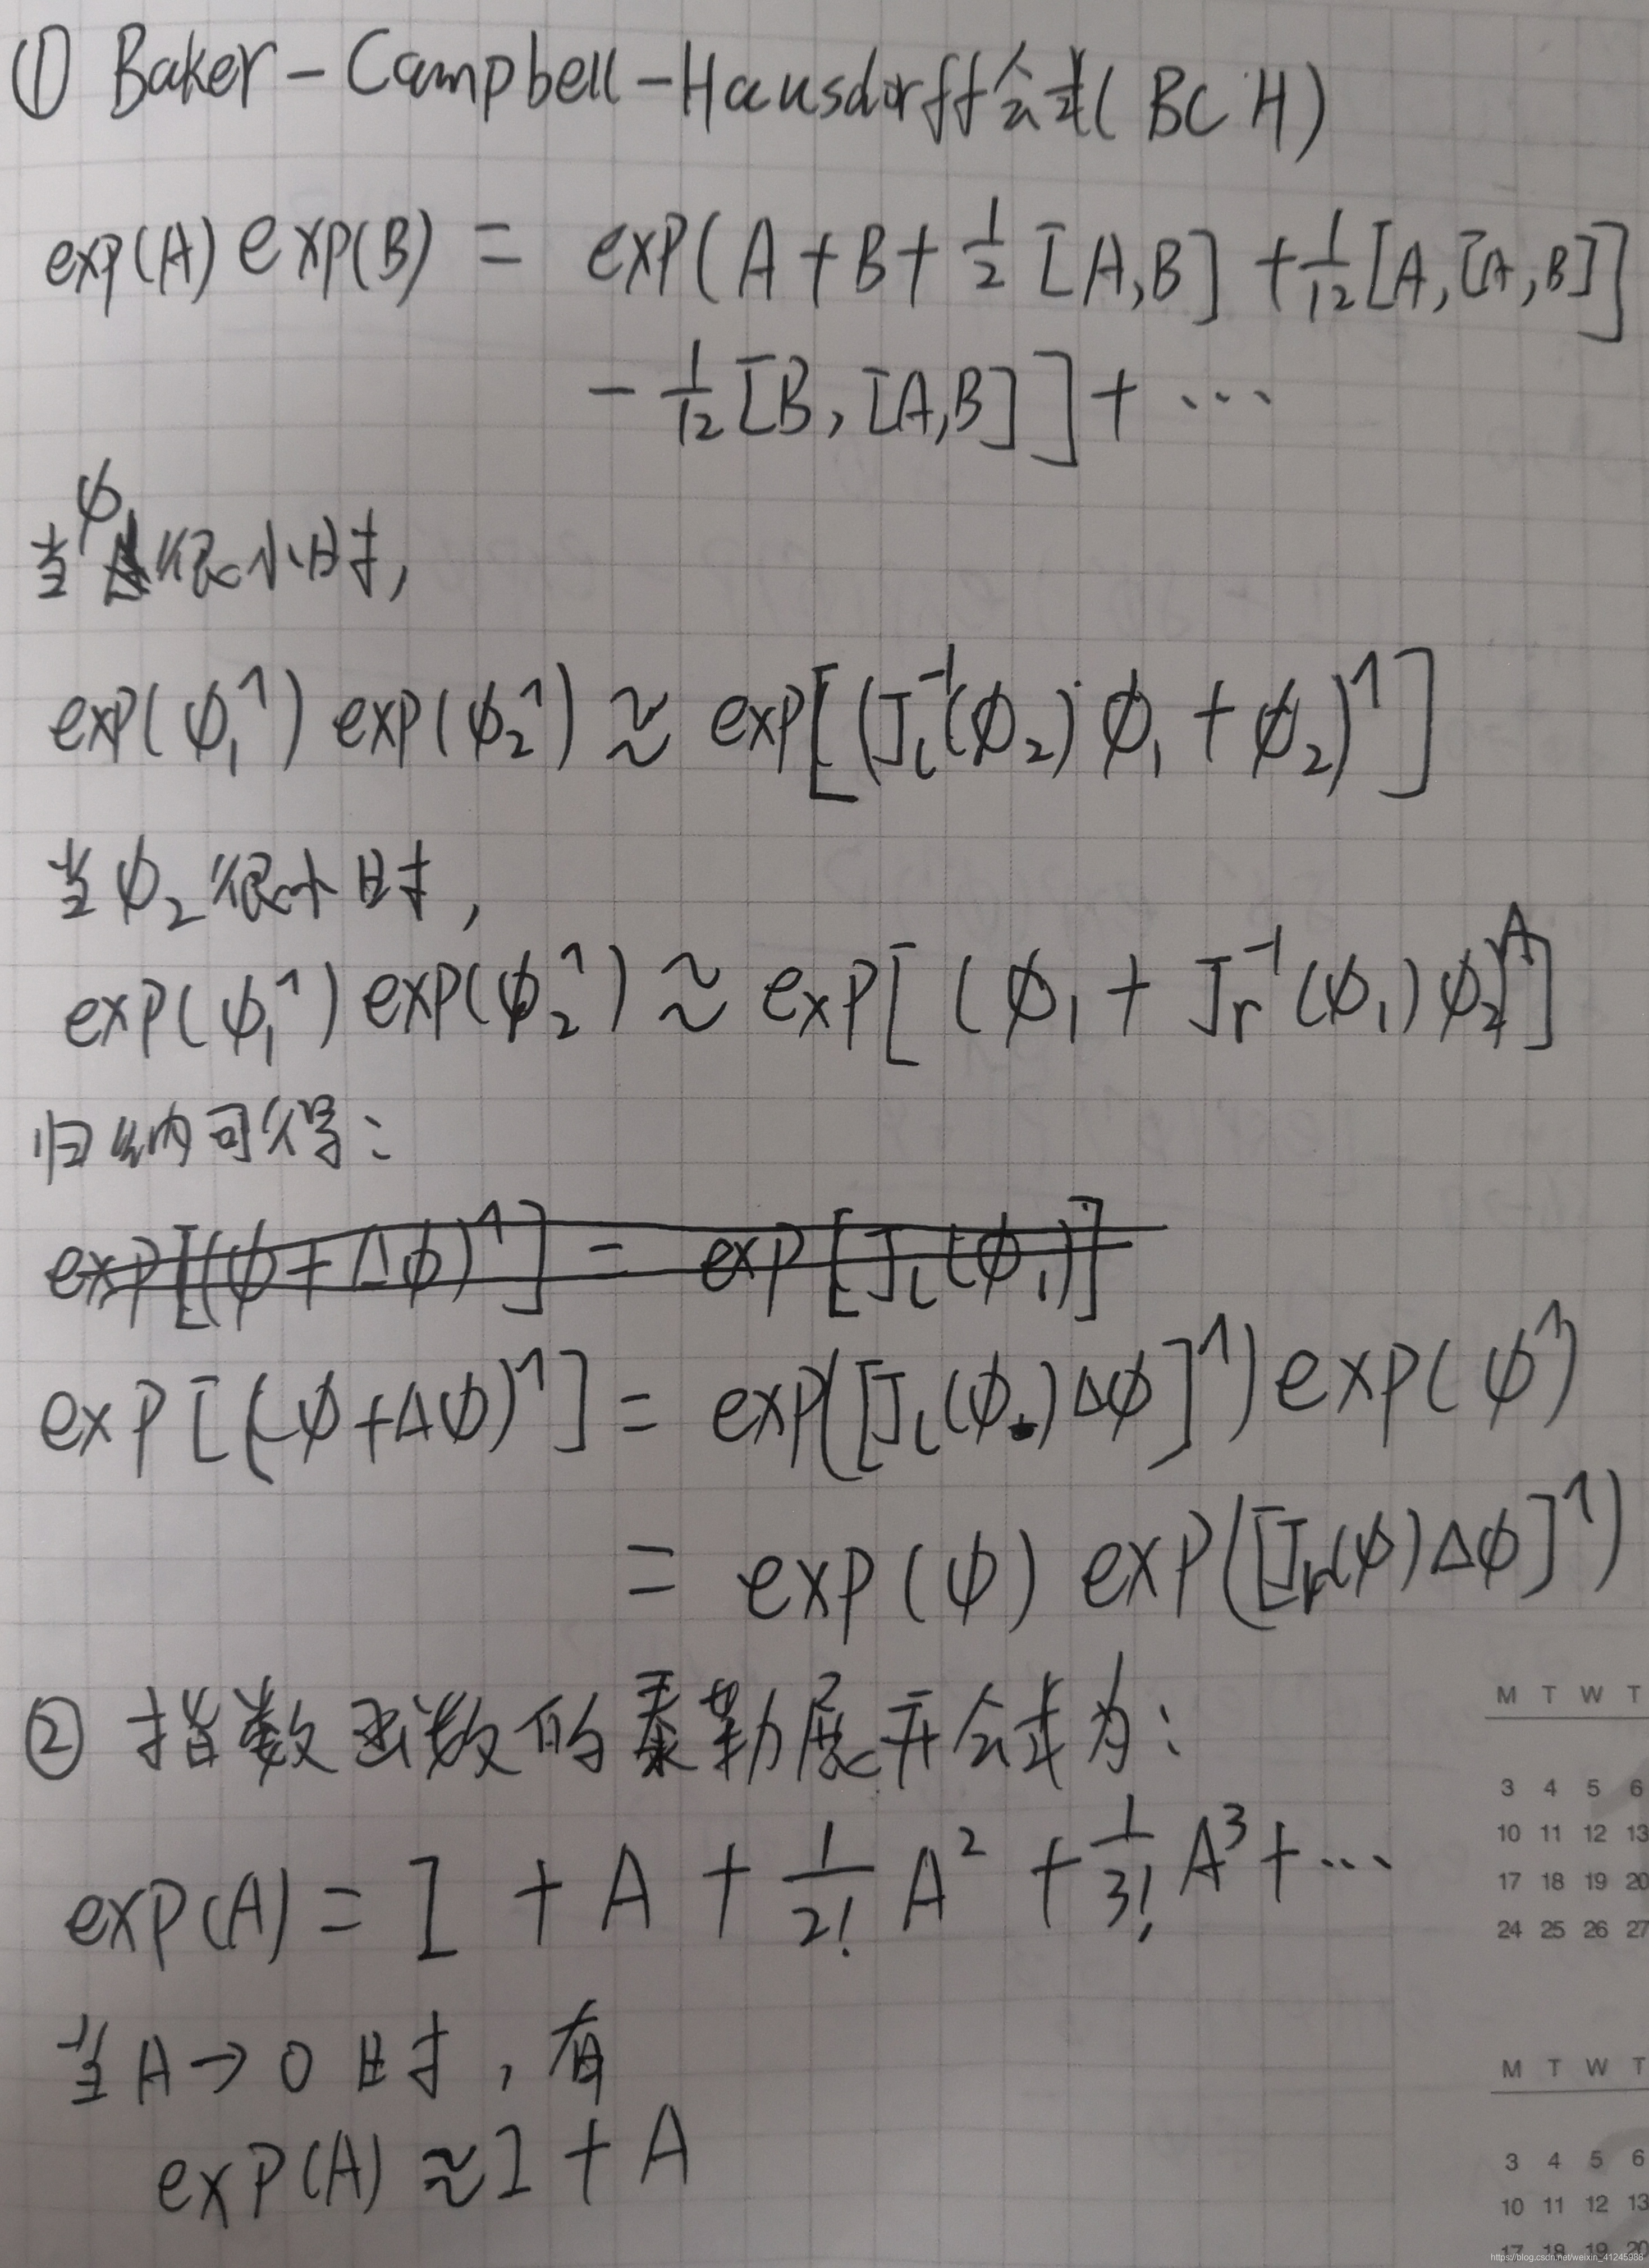 ① Baker-Campbell-Hausdorff公式(BCH)
exp(A) exp(B) = exp(A+B+½[A,B]+1/12[A,[A,B]]
-1/12[B,[A,B]]+…
当ϕ很小时,
exp(ϕ₁^) exp(ϕ₂^) ≈ exp[(Jₗ⁻¹(ϕ₂)ϕ₁+ϕ₂)^]
当ϕ₂很小时,
exp(ϕ₁^) exp(ϕ₂^) ≈ exp[(ϕ₁+Jᵣ⁻¹(ϕ₁)ϕ₂)^]
归纳可得:
exp[(ϕ+Δϕ)^] = exp[Jₗ(ϕ₁)]
exp[(ϕ+Δϕ)^] = exp([Jₗ(ϕ)Δϕ]^) exp(ϕ^)
= exp(ϕ) exp([Jᵣ(ϕ)Δϕ]^)
② 指数函数的泰勒展开公式为:
M T W T
3 4 5 6
10 11 12 13
17 18 19 20
24 25 26 27
exp(A) = I + A + 1/2! A² + 1/3! A³ + …
当A→0时,有
exp(A) ≈ I + A
M T W T
3 4 5 6
10 11 12 13
17 18 19 20
https://blog.csdn.net/weixin_41245986